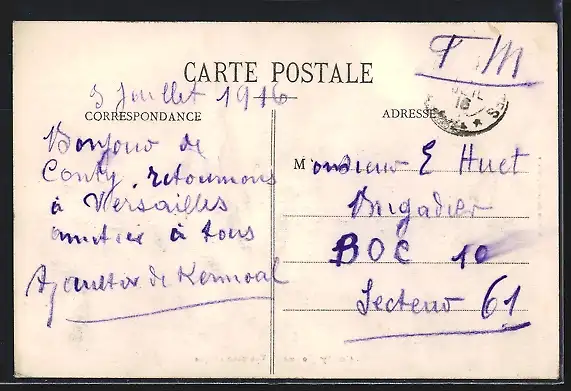 F M
CARTE POSTALE
3 Juillet 1916
CORRESPONDANCE
ADRESSE
Bonjour de
Conty, retournons
à Versailles
amitié à tous
de Kermoal
Monsieur E Huet
Brigadier
BOC 10
Secteur 61